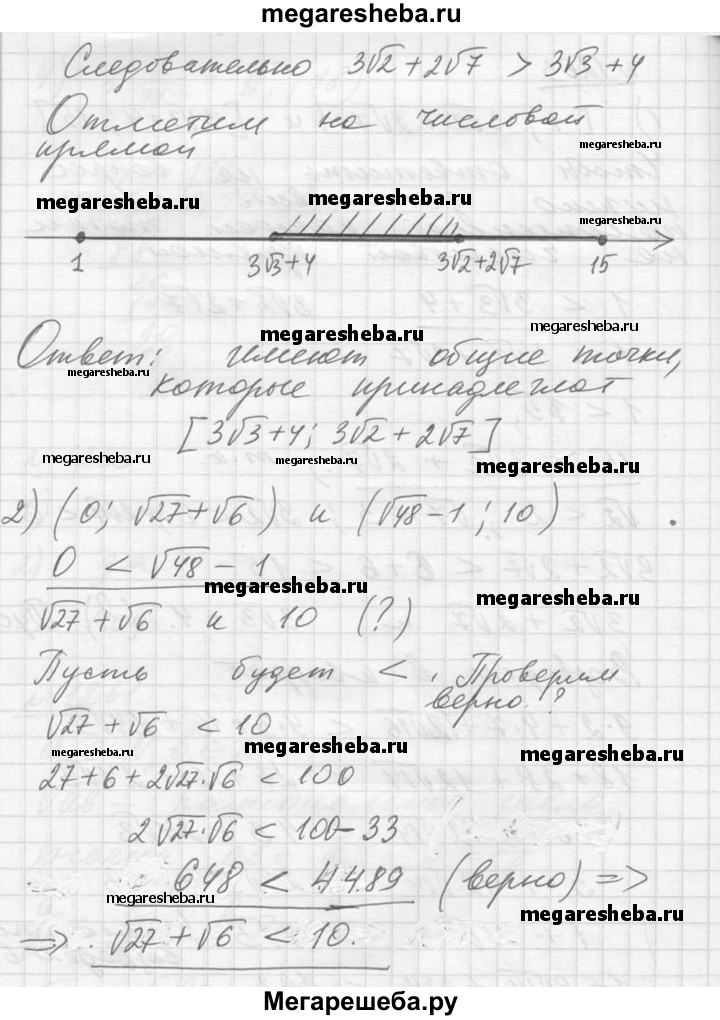 megaresheba.ru
Следовательно 3√2 + 2√7 > 3√3 + 4
Отметим на числовой
megaresheba.ru
прямой
megaresheba.ru
megaresheba.ru
megaresheba.ru
1 3√3+4 3√2+2√7 15
megaresheba.ru
megaresheba.ru
Ответ: имеют общие точки,
megaresheba.ru
которые принадлежат
[3√3+4; 3√2 + 2√7]
megaresheba.ru megaresheba.ru megaresheba.ru
2) (0; √27+√6) и (√48-1; 10)
0 < √48 - 1
megaresheba.ru
megaresheba.ru
√27 + √6 и 10 (?)
Пусть будет <. Проверим
верно?
√27 + √6 < 10
megaresheba.ru megaresheba.ru megaresheba.ru
27+6+2√27·√6 < 100
2√27·√6 < 100-33
648 < 4489 (верно) =>
megaresheba.ru
megaresheba.ru
=> √27 + √6 < 10.
Мегарешеба.ру